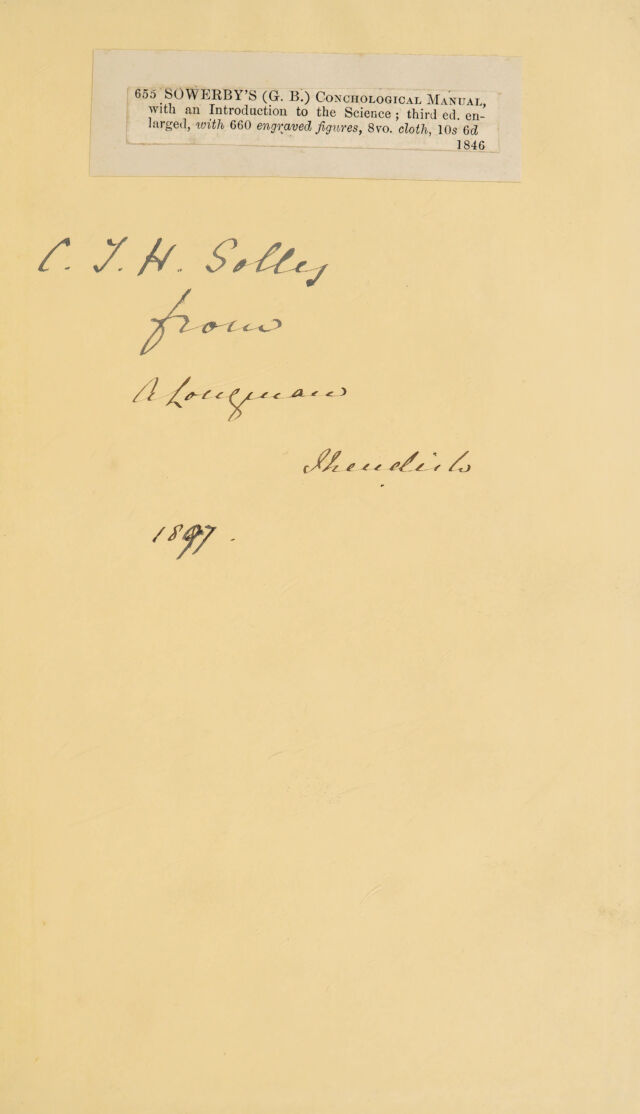 655 SOWERBY'S (G. B.) CONCHOLOGICAL MANUAL,
with an Introduction to the Science; third ed. en-
larged, with 660 engraved figures, 8vo. cloth, 10s 6d
1846
C. T. H.
from
A Longman
1897.